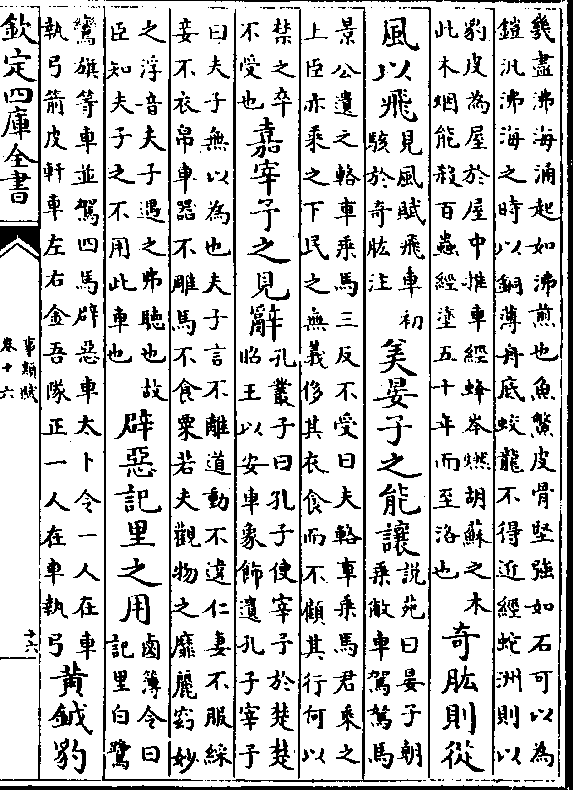 幾盡沸海涌起如沸煎也魚鱉皮骨堅強如石可以為
鎧汎沸海之時以銅薄舟底蛟龍不得近經蛇洲則以
豹皮為屋於屋中推車經蜂岑燃胡蘇之木
此木烟能殺百蟲經塗五十年而至洛也
奇肱則從
風以飛
見風賦飛車初
駭於奇肱注
美晏子之能讓
說苑曰晏子朝
乘敝車駕駑馬
景公遺之輅車乘馬三反不受曰夫輅車乘馬君乘之
上臣亦乘之下民之無義侈其衣食而不顧其行何以
禁之卒
不受也
嘉宰子之見辭
孔叢子曰孔子使宰子於楚楚
昭王以安車象飾遺孔子宰子
曰夫子無以為也夫子言不離道動不違仁妻不服綵
妾不衣帛車器不雕馬不食粟若夫觀物之靡麗窈妙
之浮音夫子遇之弗聽也故
臣知夫子之不用此車也
辟惡記里之用
鹵簿令曰
記里白鷺
鸞旗等車並駕四馬辟惡車太卜令一人在車
執弓箭皮軒車左右金吾隊正一人在車執弓
黃鉞豹
欽定四庫全書
事類賦
卷十六
十六